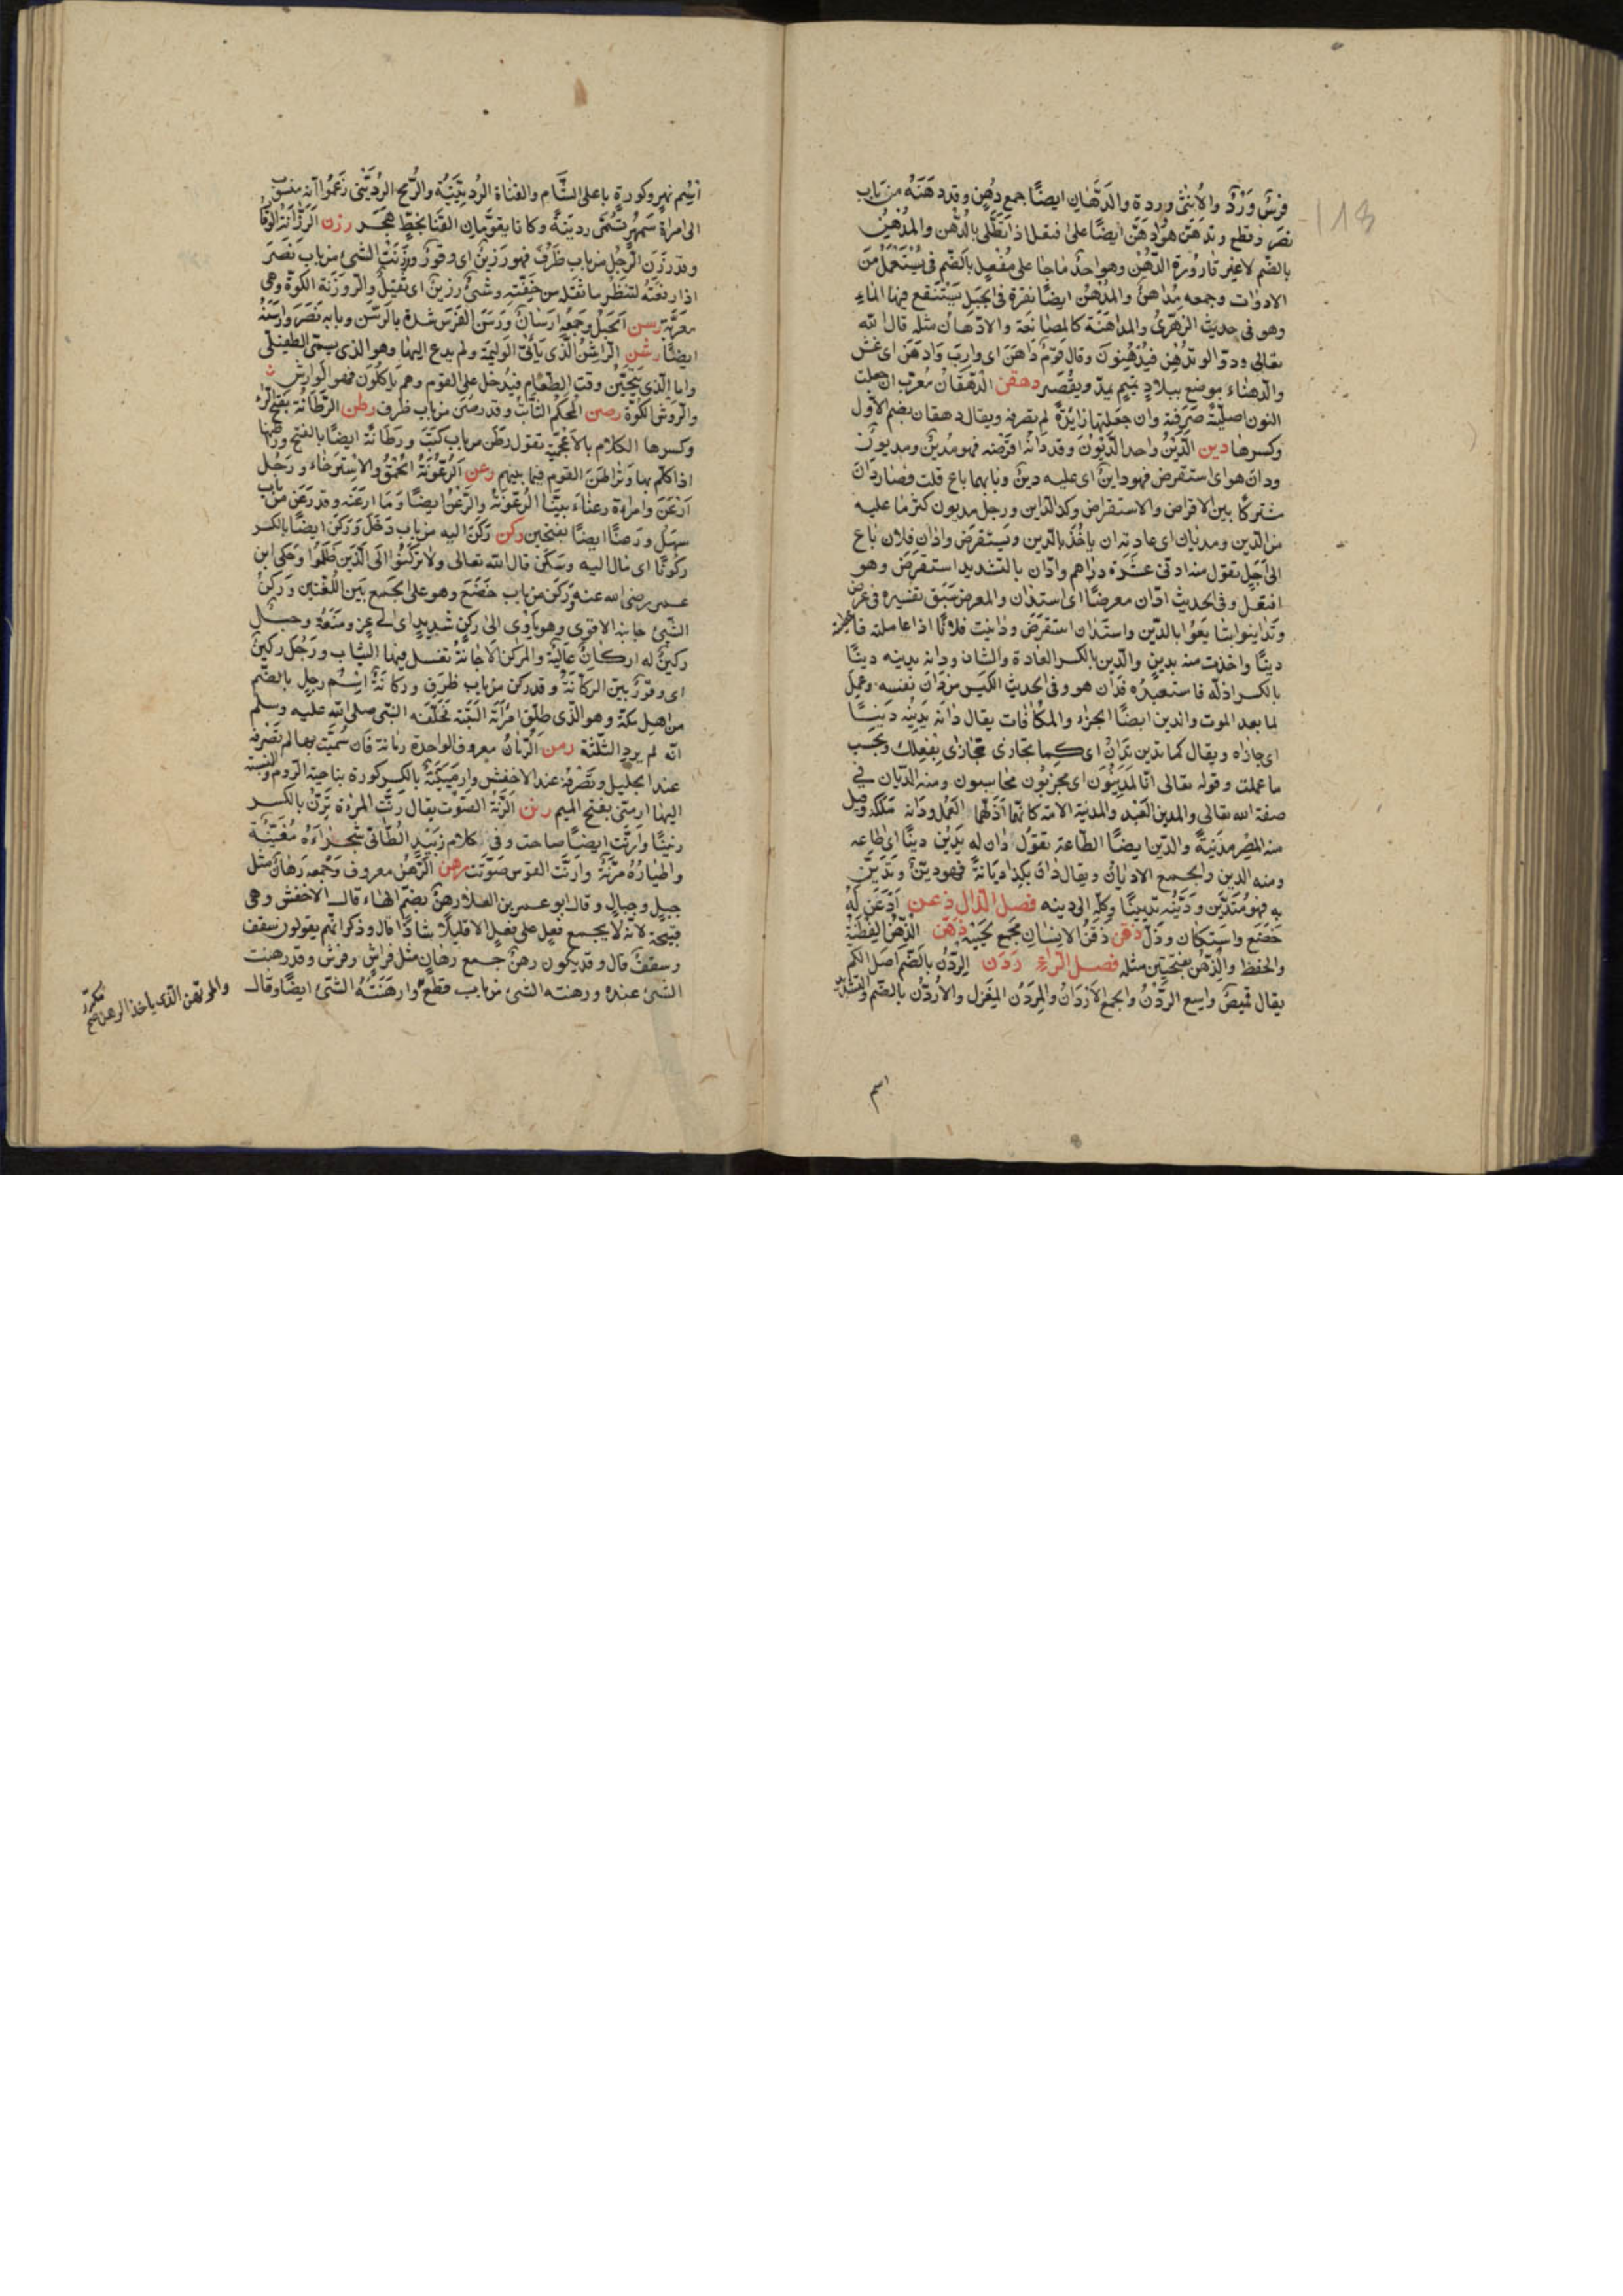 فرسٌ وَرْدٌ والأنثى وردة والدِّهان ايضًا جمع دُهن وقد دهَنَهُ من باب
نصَر وقطع وتدهّن هو وادّهن ايضًا على افتعل اذا تطلّى بالدُّهن والمُدْهُنُ
بالضّم لا غير قارورة الدّهن وهو احد ما جا على مُفْعُل بالضّم فى يُسْتعمل من
الادوات وجمعه مَداهنُ والمُدْهُنُ ايضًا نقرة فى الجبل يَسْتنقع فيها الماءُ
وهو فى حديث الزهرىّ والمداهَنَة كالمصانَعة والادّهانُ مثله قال الله
تعالى ودّوا لو تدهن فيُدْهنونَ وقال قومٌ دَاهَنَ اى وارَبَ وادهَنَ اى غش
والدهناء موضع ببلاد تميم يمدّ ويقصر دهقن الدّهقانُ مُعرّب ان جعلت
النون اصليّة صَرَفته وان جعلتها زايدةً لم يصرفه ويقال دهقان بضم الاول
وكسرها دين الدَّيْنُ واحد الدّيُونُ وقد دانَهُ اقرَضَه فهو مُدينٌ ومديونٌ
ودانَ هو اى استقرض فهو داينٌ اى عليه دينٌ وبابهما باع قلت فصار دانَ
مشتركًا بين الاقراض والاستقراض وكذا الداين ورجل مديون كثر ما عليه
من الدّين ومديانٌ اى عادته ان ياخُذَ بالدّين ويستقرضَ وادّان فلان باعَ
الى اجل تقول منه ادنى عشرة دراهم وادّان بالتشديد استقرضَ وهو
افتعل وفى الحديث ادّان معرضًا اى استدان والمعرض سَبَق تفسيره فى عرض
وتداينوا تبايعوا بالدّين واستدان استقرض ودَاينت فلانًا اذا عاملته فاعطيته
دينًا واخذت منه بدين والدّين بالكسر العادة والشان ودانه يدينه دينًا
بالكسر اذلّه فاستعبدَه فدان هو وفى الحديث الكيّس من دان نفسه وعمل
لما بعد الموت والدين ايضًا الجزاء والمكافات يقال دانه يَدِينُه دينًا
اى جازاه ويقال كما تدين تدانُ اى كما تجازى تجازى بفعلك وبحَسب
ما عملت وقوله تعالى انّا لمَدينُونَ اى مجزيّون محاسبون ومنه الدّيّان فى
صفة الله تعالى والمدين العَبْد والمدينة الامة كانّهما اذلّهما العمل ودَانه مَلَكه وقيل
منه للمِصْر مَدينةٌ والدّين ايضًا الطّاعة تقولُ دان له يَدِينُ دينًا اى اطاعه
ومنه الدين والجمع الاديانُ ويقال دَانَ بكذا ديانةً فهو ديّنٌ وتَدَيّن
به فهو مُتدَيّن ودَيَّنه تديينًا وكلّه الى دينه فصل الذال ذعن اذعَن لهُ
خضع واستكان وذلّ ذقن ذقنُ الانسان مجمع لَحْيَيْه ذهن الذّهنُ الفِطْنَةُ
والحفظ والذَّهَنُ بفتحتين مثله فصل الرّاء ردن الرُّدْنُ بالضّم اصل الكم
يقال قميصٌ واسع الرُّدْنُ والجمع الارْدَانُ والمِرْدَنُ المِغْزل والاُردُنُّ بالضّم والتشديد
اسم
اسْم نهر وكورةٍ باعلى الشّام والقناة الرُّدَيْنيّةُ والرُّمح الرُّدَيْنى زعَموا انه منسوب
الى امراةٍ سَمهَرٍ تسَمّى رُدينة وكانا يقوّمان القنا بخطّ هَجَر رزن الرَّزانَةُ الوقارُ
وقد رزُن الرّجُل من باب ظَرُف فهو رَزينٌ اى وقورٌ ورَزَنت الشئ من باب نَصَر
اذا رفعتَه لتنظُر ما ثقله من خِفّته وشئٌ رزينٌ اى ثقيلٌ والرَّوزَنة الكوّة وهى
معرّبة رسن الحَبْلُ وجمعه ارسانٌ ورَسَنَ الفرَس شدّه بالرّسَن وبابه نَصَر وارسَنَهُ
ايضًا رشن الرّاشنُ الّذى يأتى الوليمَة ولم يدع اليها وهو الذى يسمّى الطفيلىّ
واما الّذى يتحيّن وقت الطّعام فيدخل على القوم وهم ياكلون فهو الوارش
والرّوشن الكوّة رصن المُحْكَم الثابتُ وقد رصُن من باب ظرف رطن الرَّطانَة بفتح الرّاء
وكسرها الكلام بالاعْجميّة تقول رَطَن من باب كتَبَ ورَطانَةً ايضًا بالفتح ورَاطنها
اذا كلّم بها وتراطَنَ القوم فيما بينهم رعن الرُّعُونَةُ الحُمْقُ والاسترخاءُ ورَجُل
ارْعَن وامراة رعناءُ بيّنا الرُّعونة والرّعَنُ ايضًا وما ارعَنه وقد رَعُن من باب
سهُل ورعَنًا ايضًا بفتحتين ركن رَكَنَ اليه من باب دخَل وركِنَ ايضًا بالكسر
ركونًا اى مال اليه وسَكَن قال الله تعالى ولا تركنُوا الى الّذين ظَلَموا وحَكى ابن
عمر رضى الله عنه ورَكَن من باب خَضَع وهو على الجمع بين اللّغتين ورُكْنُ
الشّئ جانبه الاقوى وهو ياوى الى ركن شديد اى الى عِز ومنَعَة وجَبَل
ركينٌ له اركانٌ عاليَة والمِرْكَن الاجّانةُ تغسل فيها الثياب ورَجُل ركينٌ
اى وقورٌ بيّن الركانَة وقد ركن من باب ظرف وركانَةُ اسْم رجل بالضّم
من اهل مكّة وهو الّذى طلّق امْرَأته البَتّة فحَلّفه النّبى صلى الله عليه وسلم
انّه لم يرد الثلثة رمن الرُّمّان معروف الواحدة رمّانة فان سُمّيت بها لم تصْرفه
عند الخليل وتَصْرفه عند الاخفش وارمينيَةُ بالكسر كورة بناحية الرّوم والنسبة
اليها ارمنى بفتح الميم رنن الرَّنّة الصّوْت يقال رَنّت المرْءة تَرِنّ بالكسر
رنينًا وارنّت ايضًا صاحت وفى كلام زُبيد الطّائىّ شجراؤهُ مُغِنّةٌ
واطيارُهُ مُرِنّة وارنّت القوس صَوّتَت رهن الرّهنُ معروف وجَمعه رهان مثل
جبل وجبال وقال ابو عمر بن العلاءِ رهُنٌ بضمّ الهاء قال الاخفش وهى
قبيحَة لانّه لا يجمع فَعْل على فُعُل الا قليلًا شاذًّا قال وذكر انهم يقولون سَقف
وسقفٌ قال وقد يكون رهنٌ جمع رهان مثل فراش وفرش وقد رهنت
الشئ عنده ورهنته الشئ من باب قطع وارهَنْتُهُ الشّئ ايضًا وقال
والمرتهن الذى ياخذ الرهن